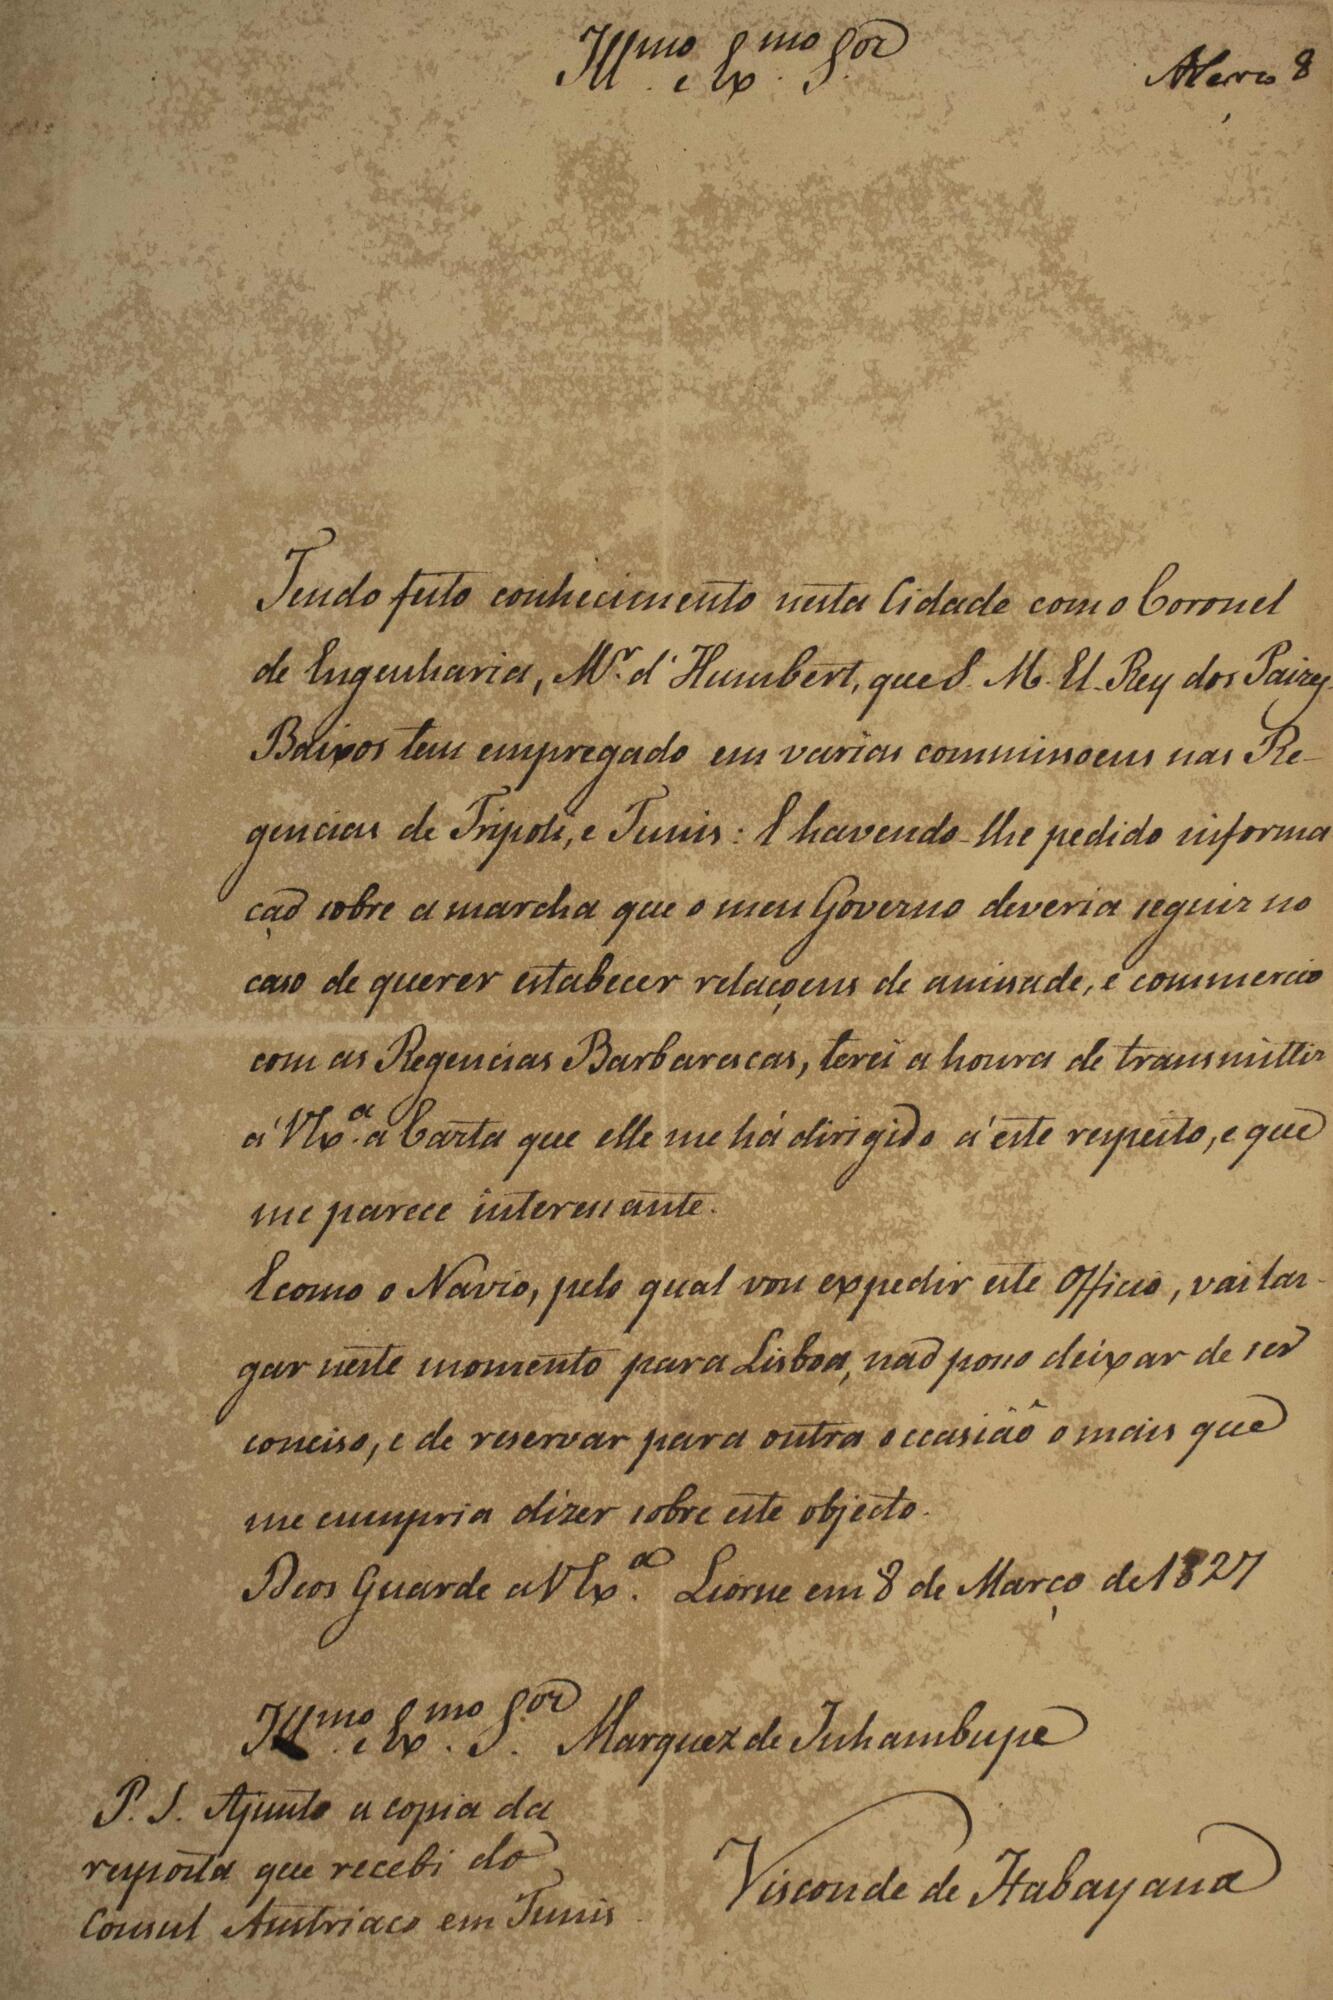 Ill.mo e Ex.mo S.or
Março 8
Tendo feito conhecimento nesta Cidade com o Coronel
de Engenharia, M.r d'Humbert, que S. M. El-Rey dos Paizes
Baixos tem empregado em varias commissoens nas Re-
gencias de Tripoli, e Tunis: E havendo-lhe pedido informa
çaõ sobre a marcha que o meu Governo deveria seguir no
caso de querer estabecer relaçoens de amisade, e commercio
com as Regencias Barbarescas, terei a honra de transmittir
a' V Ex.a a Carta que elle me há dirigido a' este respeito, e que
me parece interessante.
E como o Navio, pelo qual vou expedir este Officio, vai lar-
gar neste momento para Lisboa, naõ posso deixar de ser
conciso, e de reservar para outra occasiaõ o mais que
me cumpria dizer sobre este objecto.
Deos Guarde a V Ex.a Liorne em 8 de Março de 1827
Ill.mo e Ex.mo S.or Marquez de Inhambupe
P. S. Ajunto a copia da
resposta que recebi do
Consul Austriaco em Tunis
Visconde de Itabayana